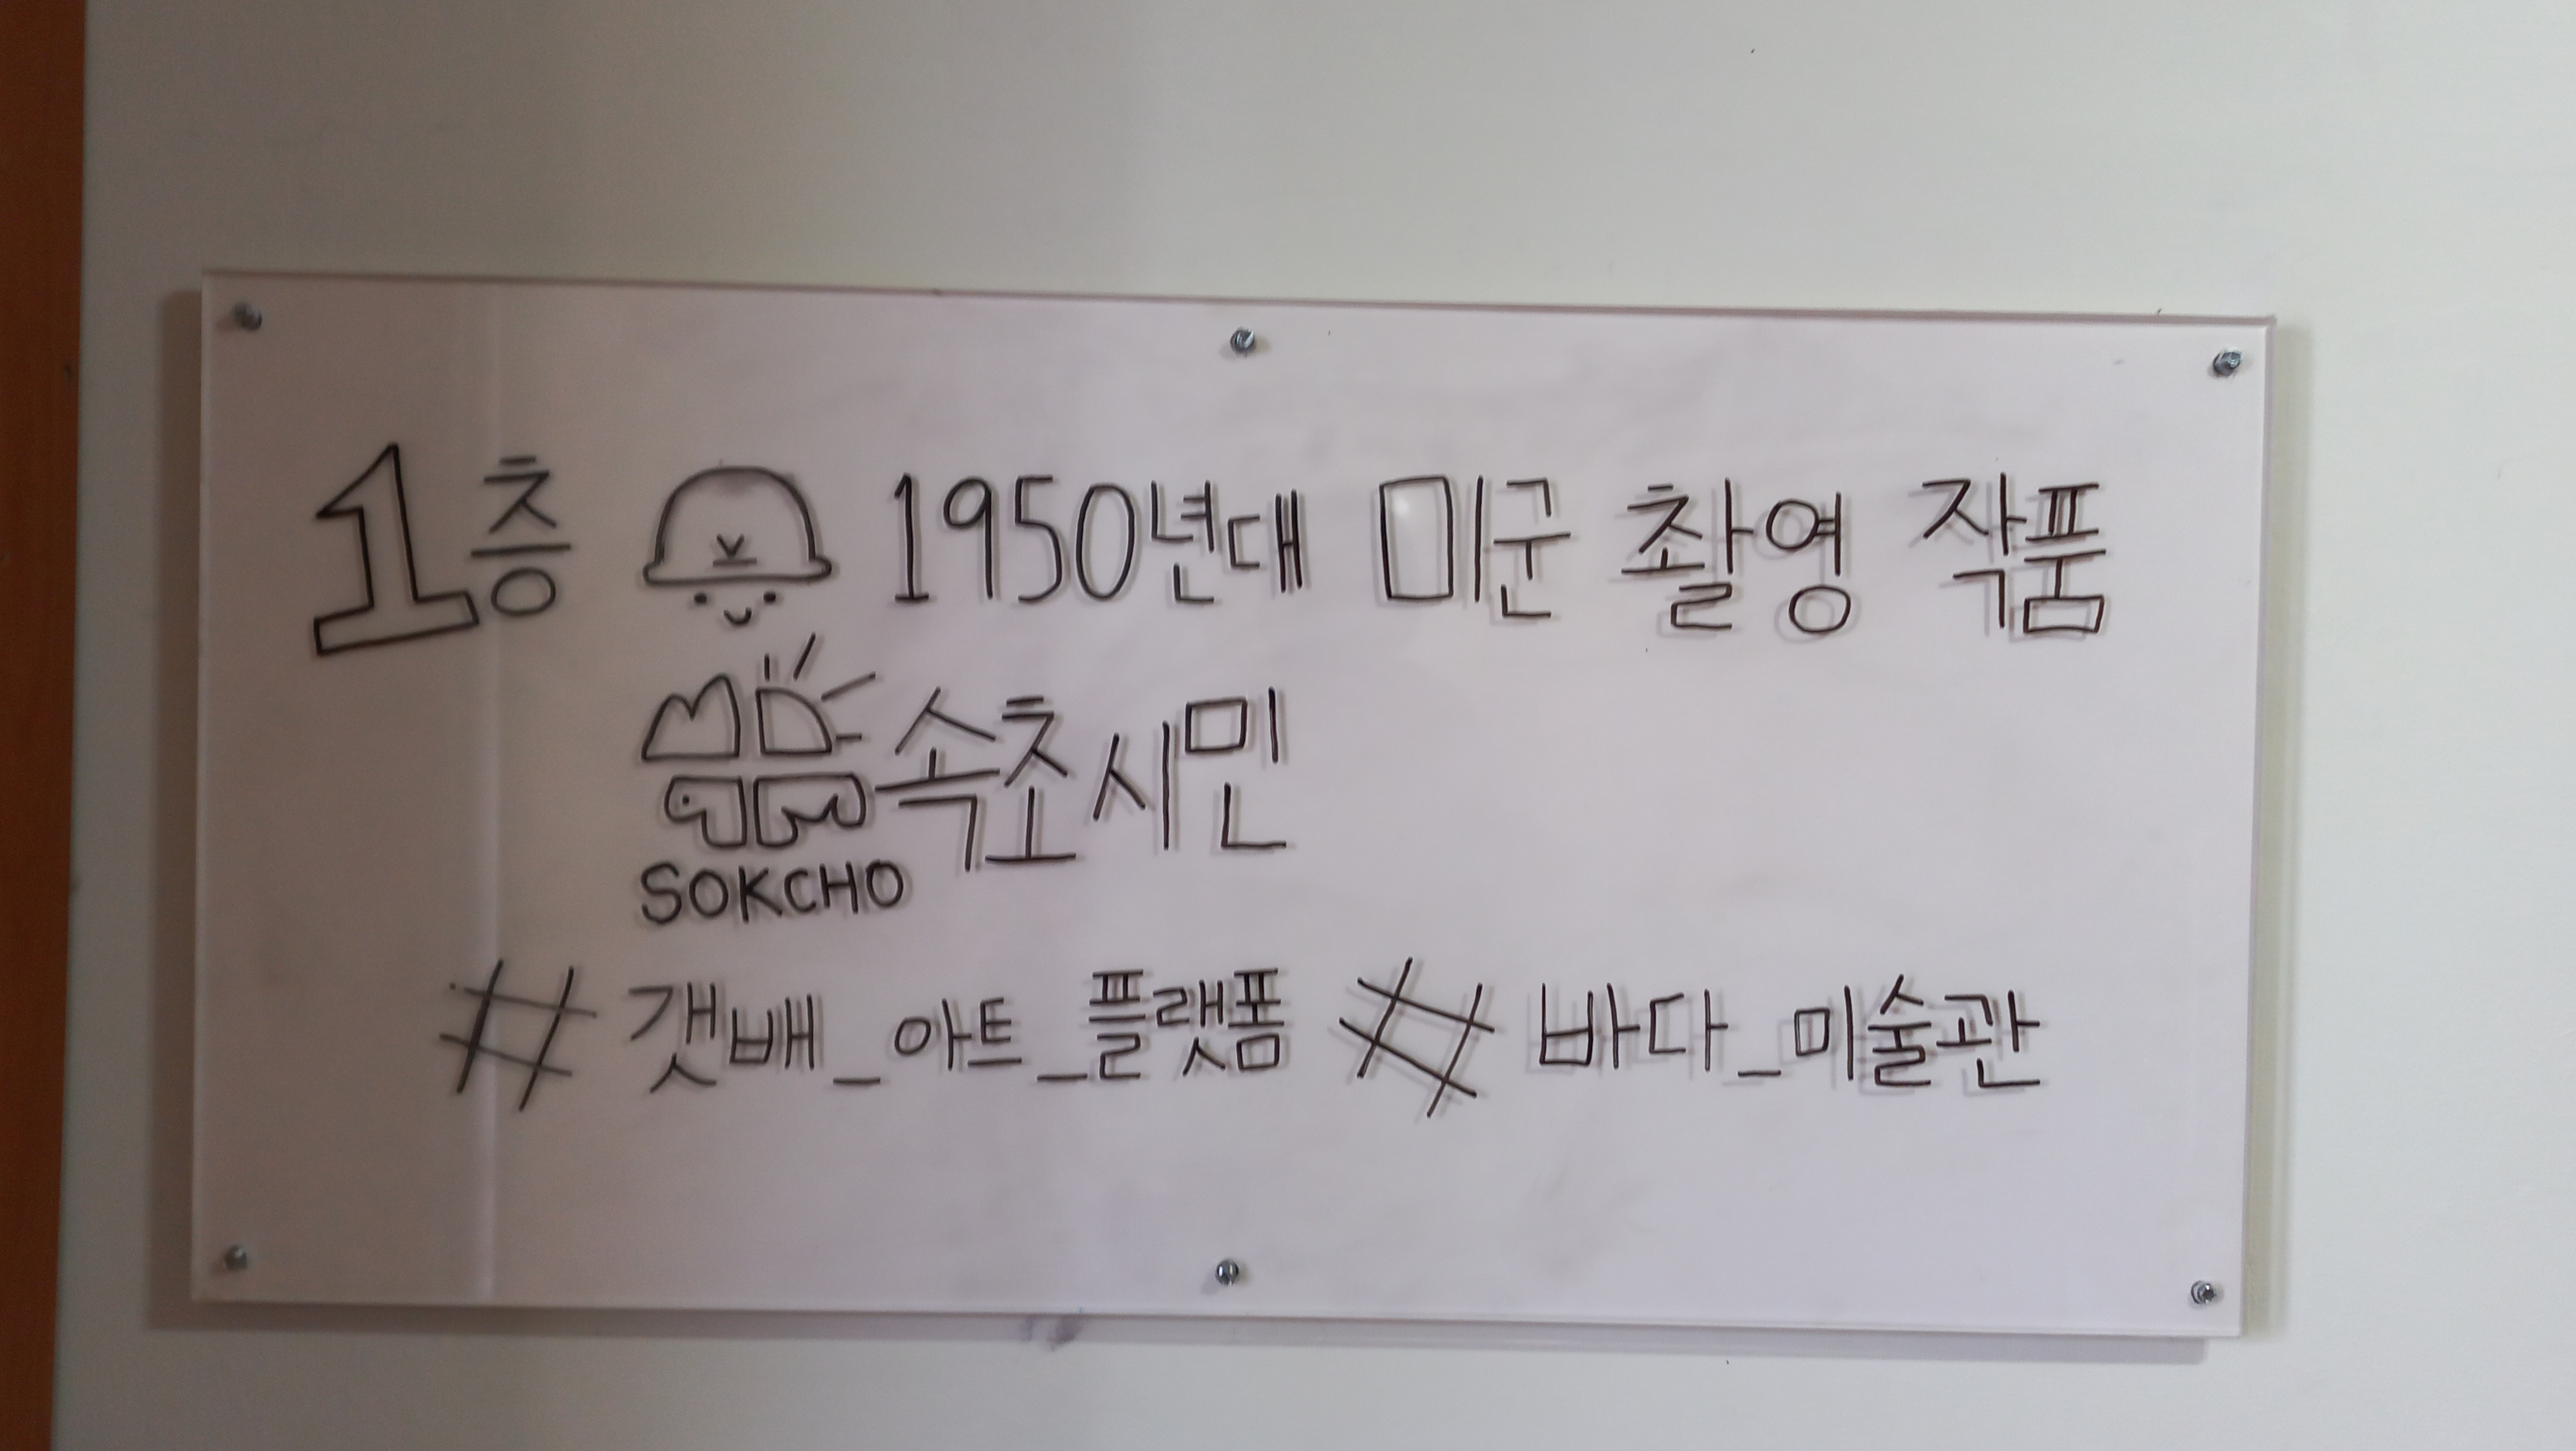 1층 1950년대 미군 촬영 작품
속초시민
SOKCHO
#갯배_아트_플랫폼 #바다_미술관